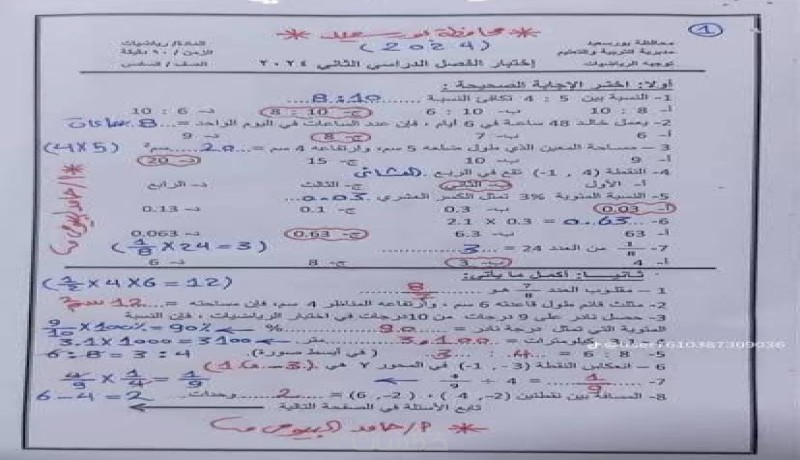 1
* محافظة بورسعيد *
(2024)
محافظة بورسعيد
مديرية التربية والتعليم
توجيه الرياضيات
المادة/ رياضيات
الزمن/ ٩٠ دقيقة
الصف/ السادس
إختبار الفصل الدراسي الثاني ٢٠٢٤
أولا: اختر الإجابة الصحيحة :
1- النسبة بين 5 : 4 تكافئ النسبة ........ 8:10
أ- 8 : 10 ب- 10 : 6 ج- 10 : 8 د- 6 : 10
2- يعمل خالد 48 ساعة في 6 أيام ، فإن عدد الساعات في اليوم الواحد = ... 8 ساعات
أ- 6 ب- 7 ج- 8 د- 9
3 – مساحة المعين الذي طول ضلعه 5 سم، وارتفاعه 4 سم = .... 20 .... سم² (4×5)
أ- 9 ب- 10 ج- 15 د- 20
4- النقطة (4 , 1-) تقع في الربع . الثاني
أ- الأول ب- الثاني ج- الثالث د- الرابع
5- النسبة المئوية 3% تمثل الكسر العشري . 0.03
أ- 0.03 ب- 0.3 ج- 0.1 د- 0.13
6- 2.1 × 0.3 = 0.63
أ- 63 ب- 6.3 ج- 0.63 د- 0.063
7- 1/8 من العدد 24 = ..... 3 ..... (1/8 × 24 = 3)
أ- 4 ب- 3 ج- 8 د- 6
ثانيا: أكمل ما يأتي: (1/2 × 4 × 6 = 12)
1 – مقلوب العدد 7/8 هو .... 8/7
2- مثلث قائم طول قاعدته 6 سم ، وارتفاعه المناظر 4 سم، فإن مساحته = ... 12 سم²
3- حصل نادر على 9 درجات من 10درجات في اختبار الرياضيات ، فإن النسبة
المئوية التي تمثل درجة نادر = ..... 90 ..... % 9/10 × 100% = 90%
كيلومترات = .... 3100 .... متر. 3.1 × 1000 = 3100
5- 8 : 6 = .. 4 .. : .. 3 .. ( في أبسط صورة). 6 : 8 = 3 : 4
6 – انعكاس النقطة (3 , 1-) في المحور y هي
7- 4/9 ÷ 4 = .... 1/9 4/9 × 1/4 = 1/9
8- المسافة بين نقطتين (2- , 4) ، (2- , 6) = .... 2 .... وحدات. 6-4=2
تابع الأسئلة في الصفحة التالية
* P/حامد البيومى